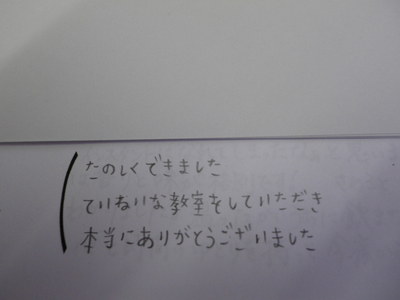 たのしくできました
ていねいな教室をしていただき
本当にありがとうございました